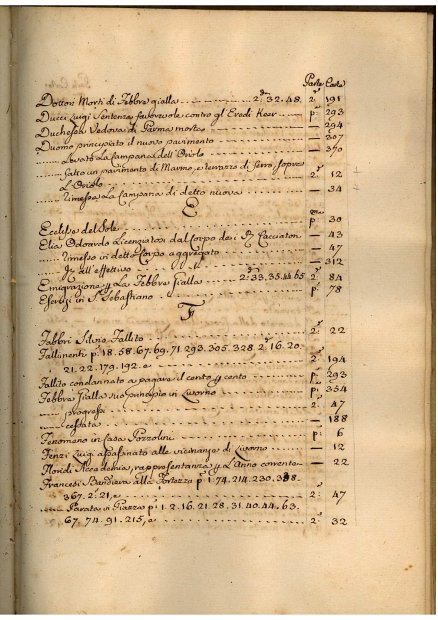 Parte Carte
Dottori Morti di Febbre gialla 2.ª 32. 48. 2.ª 191
Ducci Luigi Sentenza favorevole contro gl'Eredi Keer p.ª 293
Duchessa Vedova di Parma morta — 294
Duomo principiato il nuovo pavimento — 307
Levata La Campana dell'Oriolo — 370
fatto un pavimento di Marmo, e terrazzo di ferro sopra
L'Oriolo 2.ª 12
rimessa La Campana di detto nuova — 34
E
Eclisse del Sole p.ma 30
Elia Odoardo Licenziato dal Corpo dei Cacciatori — 43
rimesso in detto Corpo aggregato — 47
all'effettivo — 312
Emigrazione La Febbre Gialla 2.ª 33. 35. 44. 65 2.ª 84
Esercizi in S. Sebastiano p.ª 78
F
Fabbri Silvio Fallito 2.ª 22
Fallimenti p.ª 18. 58. 67. 69. 71. 293. 305. 328. 2.ª 16. 20.
21. 22. 179. 192. e 2.ª 194
Fallito condannato a pagare il cento cento p.ª 293
Febbre Gialla suo principio in Livorno p.ª 354
progressi 2.ª 47
cessata — 188
Fenomeno in Casa Pozzolini p.ª 6
Fenzi Luigi alle vicinanze di Livorno — 12
Floridi Accademia, rappresentanza L'Anno corrente — 22
Francesi Bandiera alla Fortezza p.ª 1. 74. 214. 230. 338.
367. 2. 21, e 2.ª 47
Parata in Piazza p.ª 1. 2. 16. 21. 28. 31. 40. 44. 63.
67. 74. 91. 215, e 2.ª 32